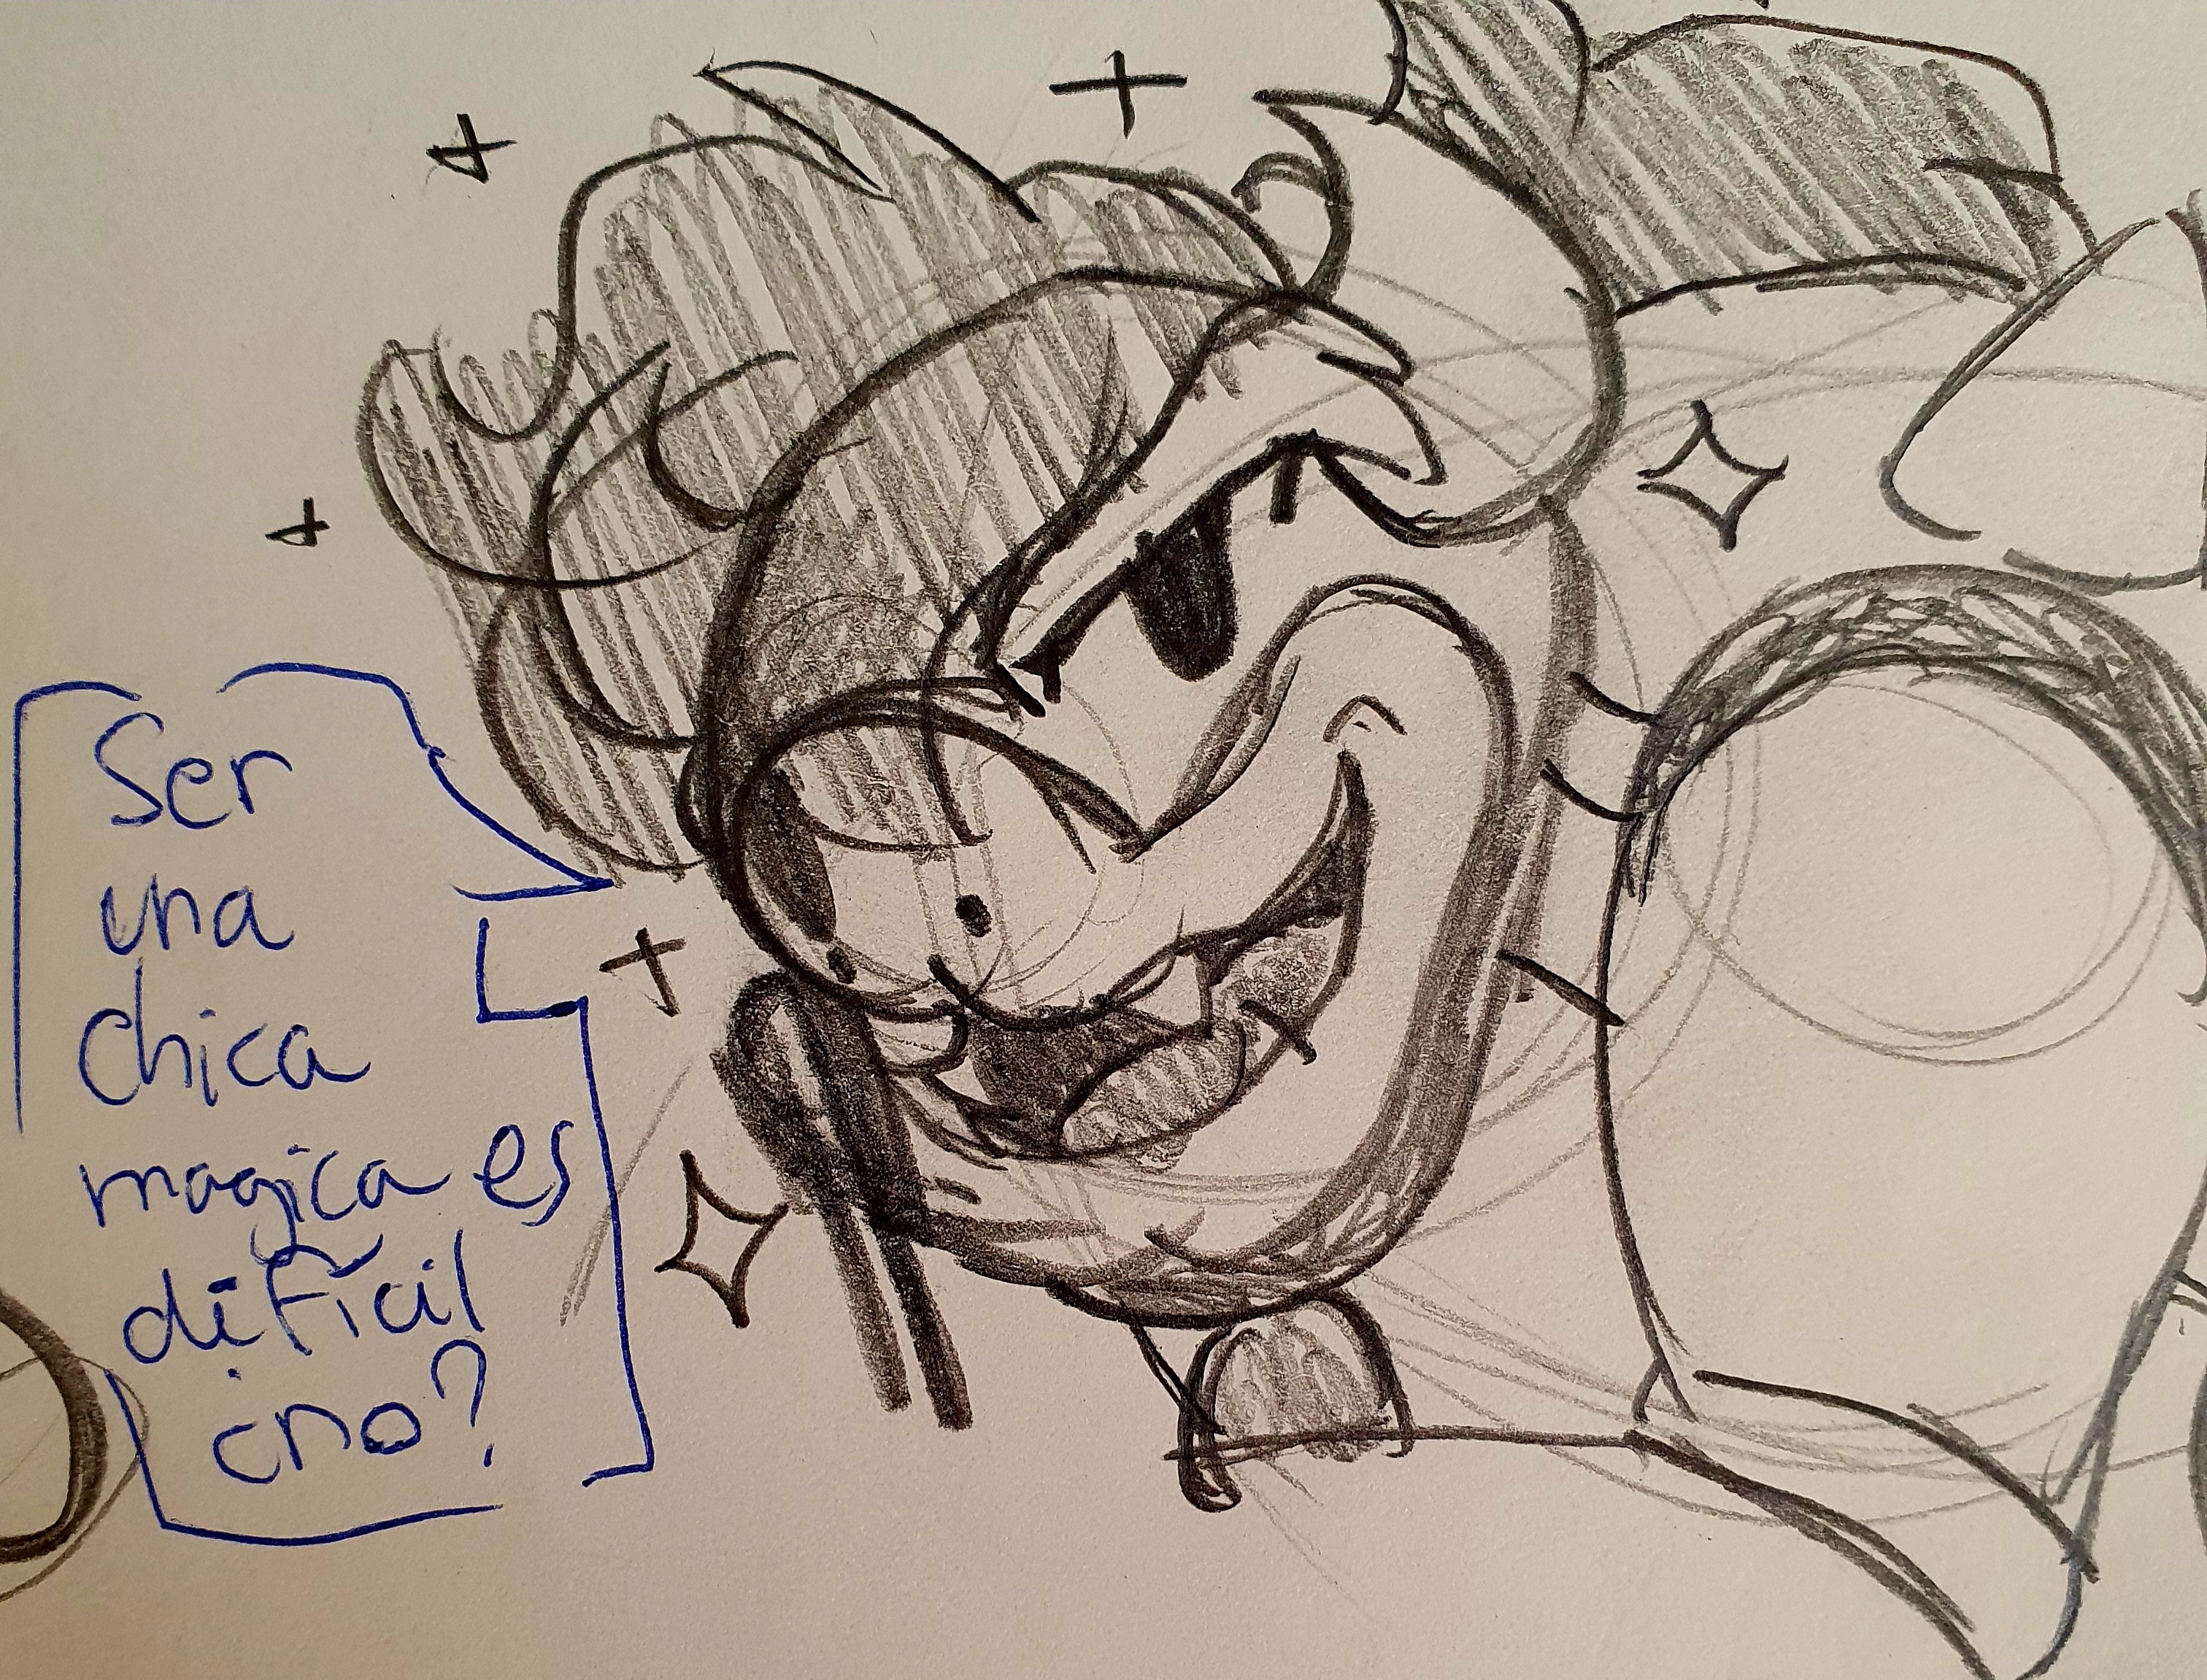 Ser
una
chica
magica es
difícil
¿no?